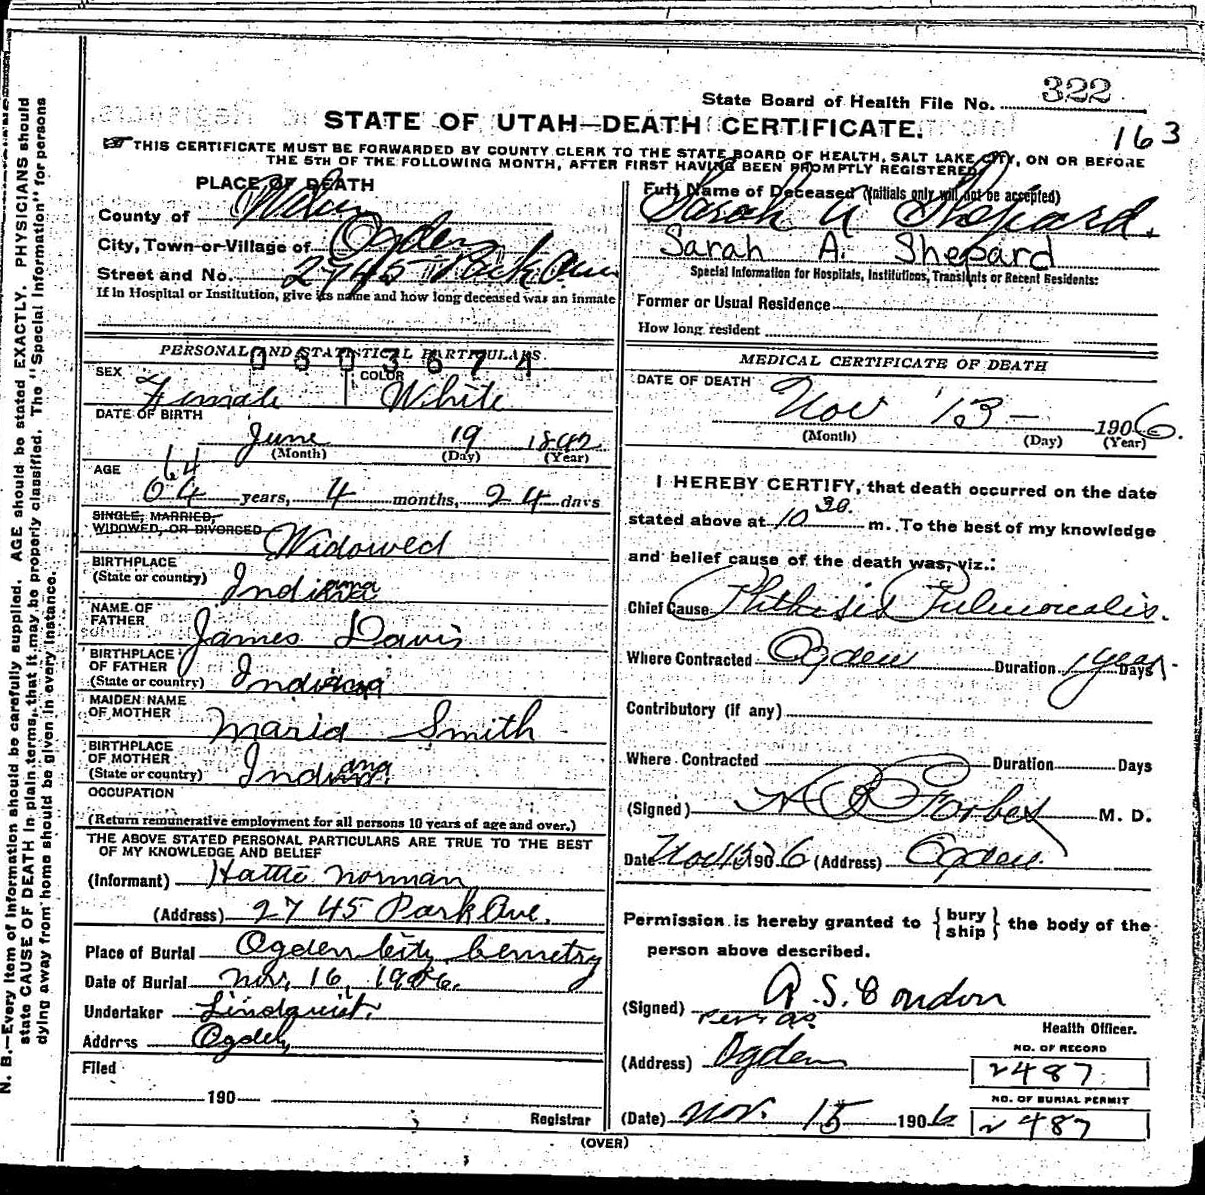 State Board of Health File No. 322
STATE OF UTAH—DEATH CERTIFICATE.
163
THIS CERTIFICATE MUST BE FORWARDED BY COUNTY CLERK TO THE STATE BOARD OF HEALTH, SALT LAKE CITY, ON OR BEFORE
THE 5TH OF THE FOLLOWING MONTH, AFTER FIRST HAVING BEEN PROMPTLY REGISTERED.
N. B.—Every item of information should be carefully supplied. AGE should be stated EXACTLY. PHYSICIANS should
state CAUSE OF DEATH in plain terms, that it may be properly classified. The "Special Information" for persons
dying away from home should be given in every instance.
PLACE OF DEATH
County of Weber
City, Town or Village of Ogden
Street and No. 2745 Park Ave
If in Hospital or Institution, give its name and how long deceased was an inmate
PERSONAL AND STATISTICAL PARTICULARS.
0603674
SEX Female COLOR White
DATE OF BIRTH
June 19
(Month) (Day) (Year)
64
AGE 64 years, 4 months, 24 days
SINGLE, MARRIED,
WIDOWED, OR DIVORCED Widowed
BIRTHPLACE
(State or country) Indiana
NAME OF
FATHER James Davis
BIRTHPLACE
OF FATHER
(State or country) Indiana
MAIDEN NAME
OF MOTHER Maria Smith
BIRTHPLACE
OF MOTHER
(State or country) Indiana
OCCUPATION
(Return remunerative employment for all persons 10 years of age and over.)
THE ABOVE STATED PERSONAL PARTICULARS ARE TRUE TO THE BEST
OF MY KNOWLEDGE AND BELIEF
(Informant) Hattie Norman
(Address) 2745 Park Ave.
Place of Burial Ogden City Cemetry
Date of Burial Nov. 16, 1906.
Undertaker Lindquist.
Address Ogden
Filed
190
Registrar
Full Name of Deceased (Initials only will not be accepted)
Sarah A Shepard.
Sarah A. Shepard
Special Information for Hospitals, Institutions, Transients or Recent Residents:
Former or Usual Residence
How long resident
MEDICAL CERTIFICATE OF DEATH
DATE OF DEATH
Nov 13 — 1906.
(Month) (Day) (Year)
I HEREBY CERTIFY, that death occurred on the date
stated above at 10 30 m. To the best of my knowledge
and belief cause of the death was, viz.:
Chief Cause Phthisis Pulmonalis.
Where Contracted Ogden Duration 1 year Days
Contributory (if any)
Where Contracted Duration Days
(Signed) Forbes M. D.
Date Nov 15 1906 (Address) Ogden.
Permission is hereby granted to {bury ship} the body of the
person above described.
(Signed) A. S. Condon
Health Officer.
(Address) Ogden
NO. OF RECORD
2487
NO. OF BURIAL PERMIT
2487
(Date) Nov. 15 1906
(OVER)